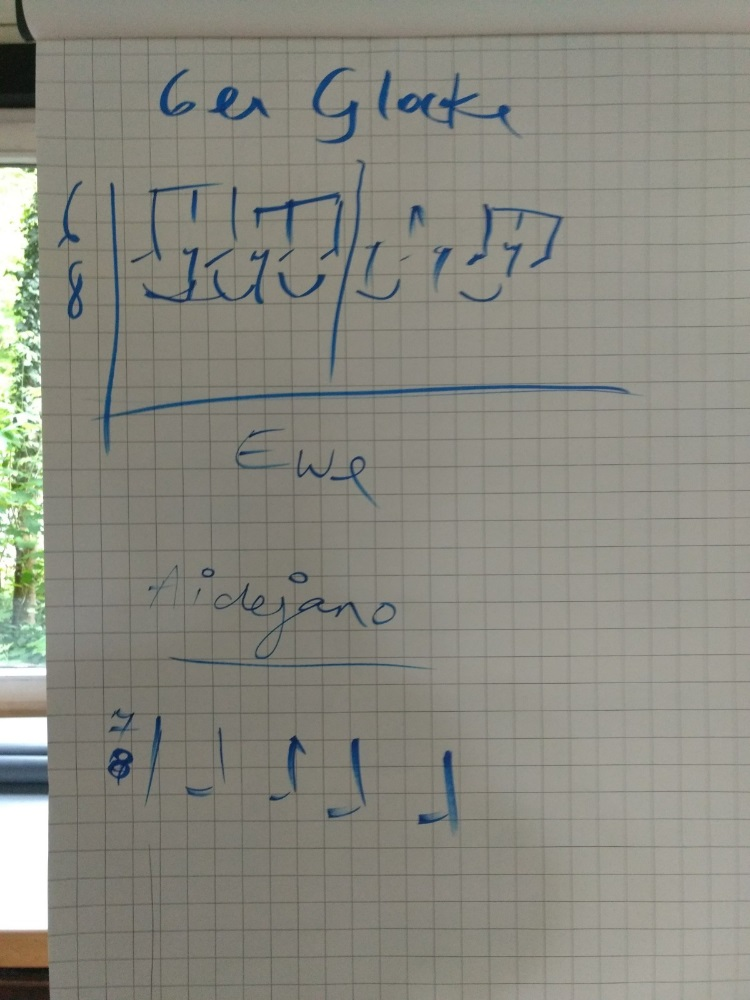 6er Glocke
6
8
Ewe
Aidejano
7
8